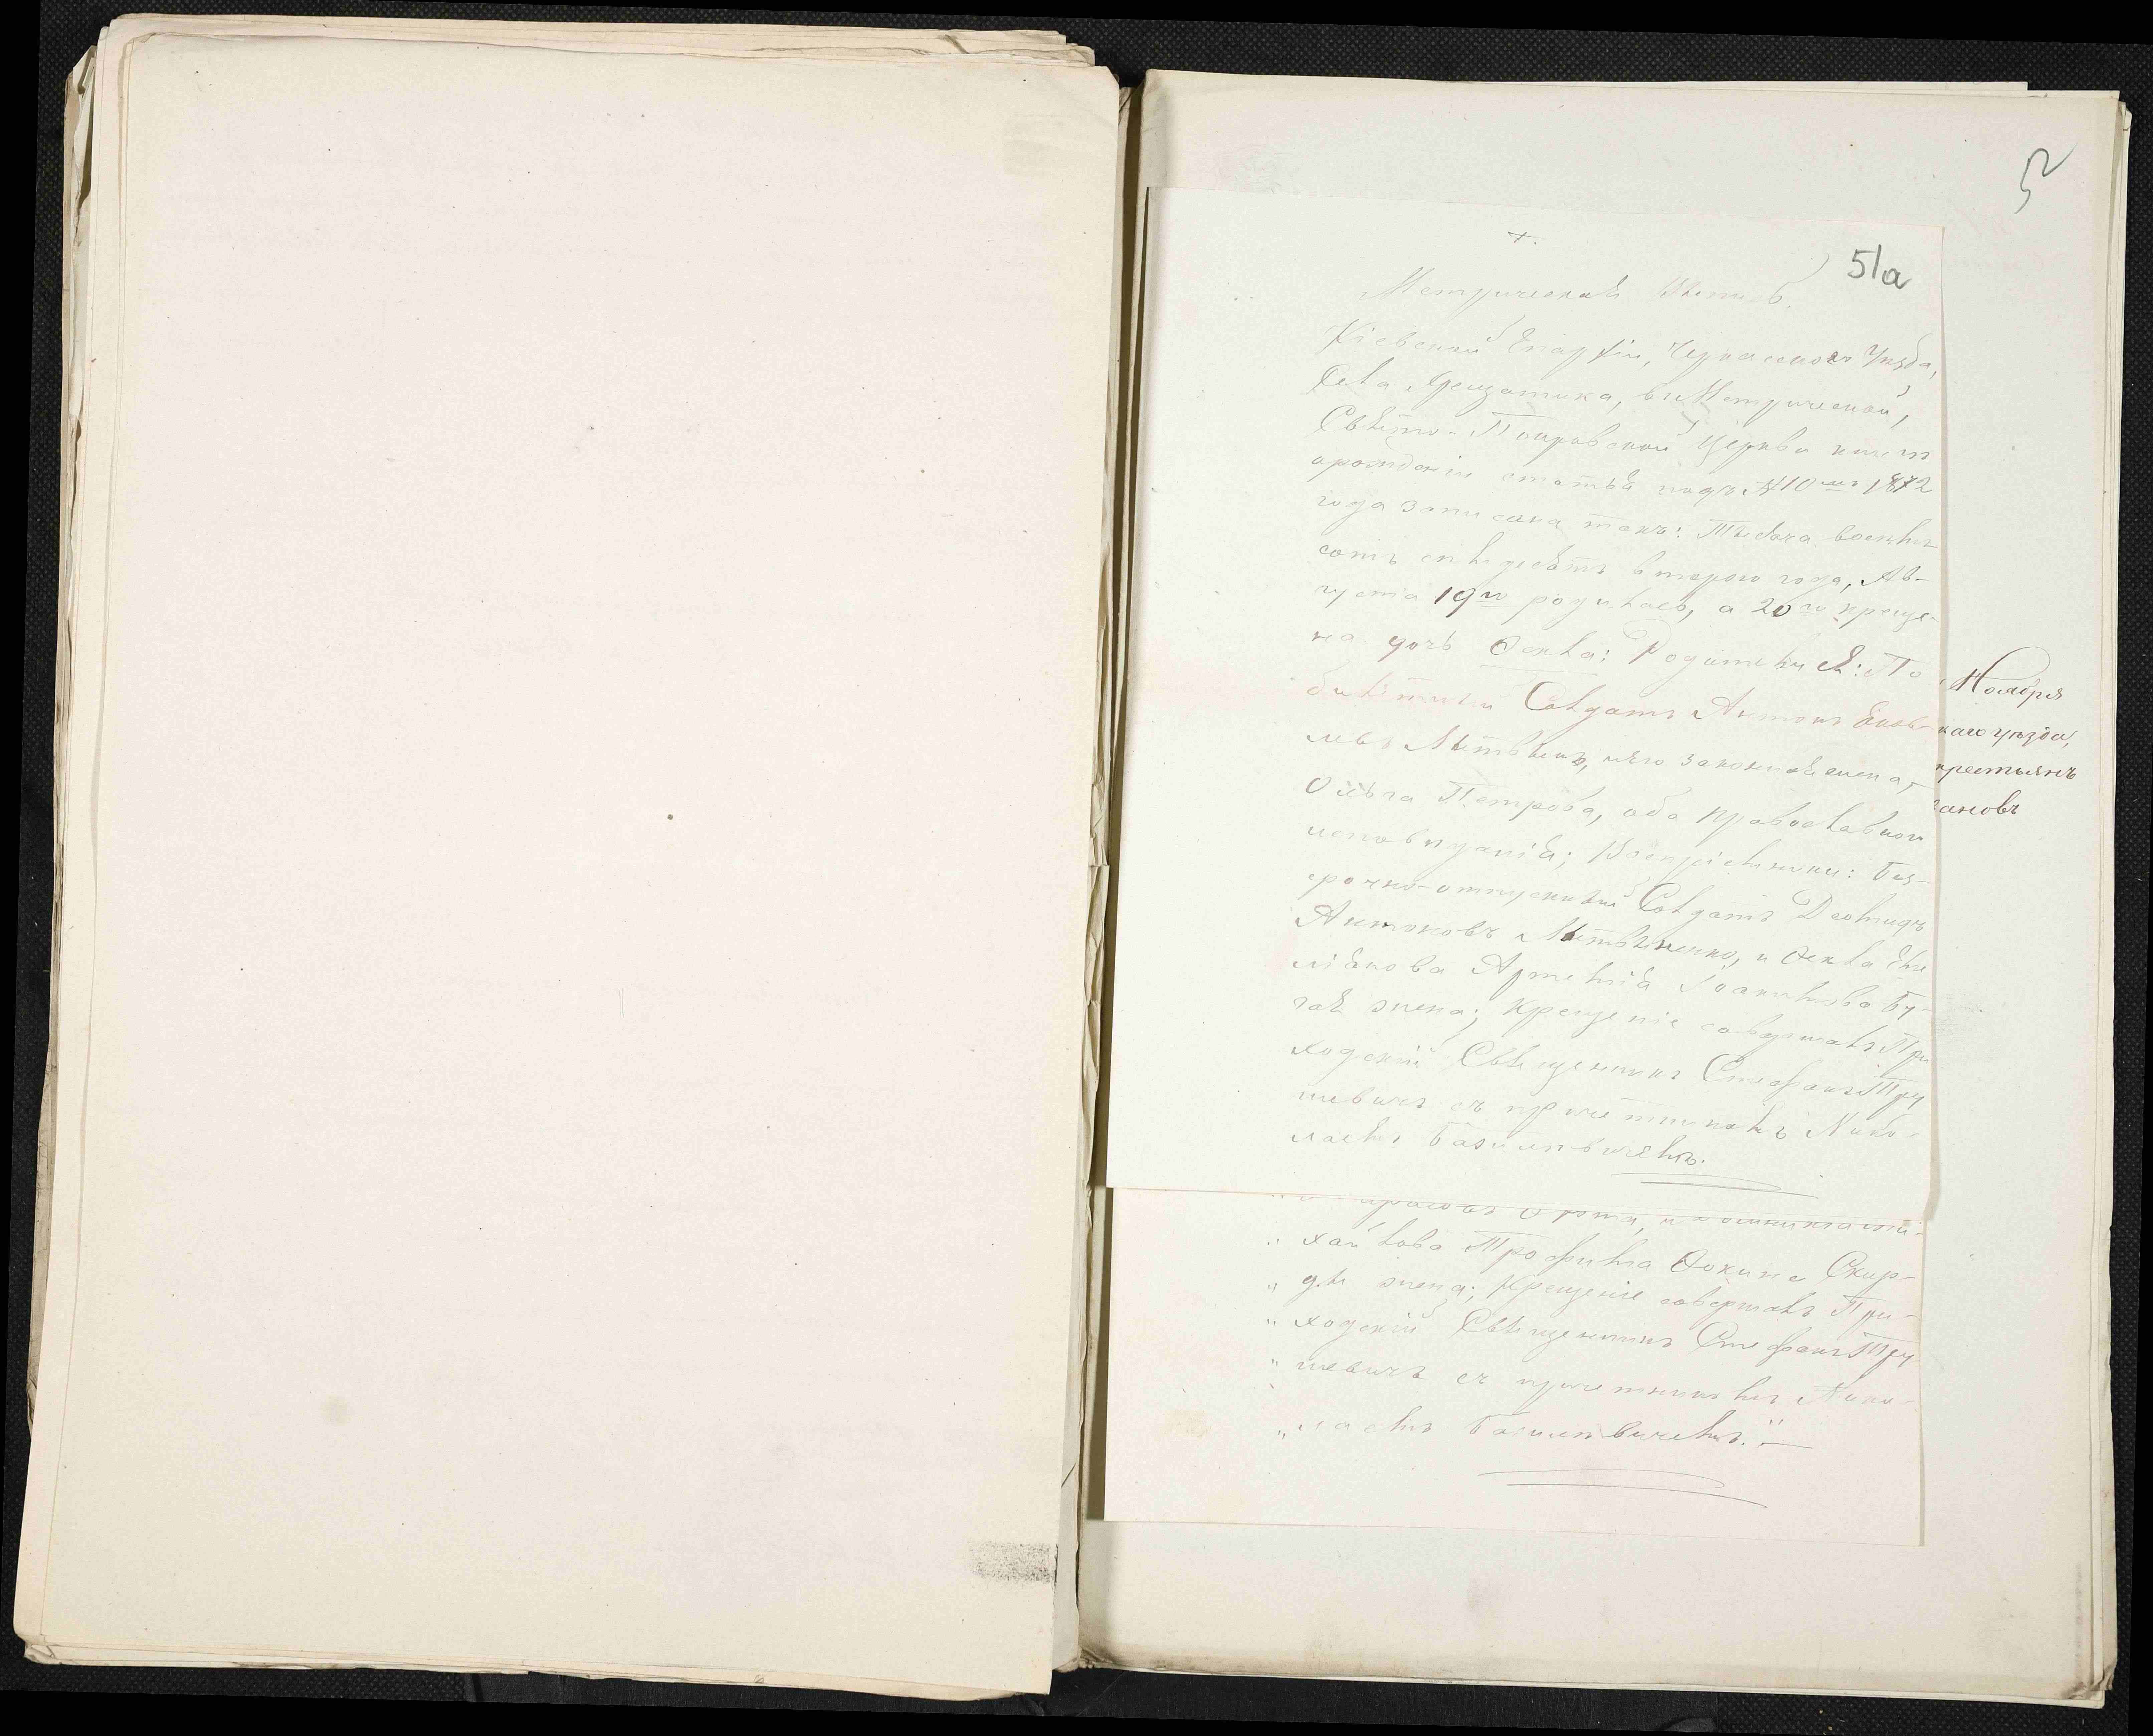 52
51а
Метрическая Выпись.
Кіевской Епархіи, Черкасскаго Уѣзда,
Села Хрещатика, въ Метрической,
Свято-Покровской Церкви книгѣ
о рожденіи статья подъ № 10мъ 1872
года записана такъ: Тысяча восемь
сотъ семьдесятъ втораго года, Ав-
густа 19го родилась, а 20го креще-
на дочь Фекла: Родители ея:
билетный Солдатъ Антонъ
законная жена,
Петрова, оба православнаго
исповѣданія; Воспріемники: Без-
срочно-отпускный Солдатъ Деомидъ
Антоновъ и Фекла Еме
ліанова Артемія Іоакимова Бу-
жена; Крещеніе совершалъ При
ходскій Священникъ Стефанъ Тру
шевичъ съ причетникомъ Нико-
лаемъ Базилевичемъ.
Ноября
каго уѣзда,
крестьянъ
ановъ
„ хайлова Трофима Фокина Скир-
„ ды жена; Крещеніе совершалъ При-
„ ходскій Священникъ Стефанъ Тру-
„ шевичъ съ причетникомъ Нико-
„ лаемъ Базилевичемъ."